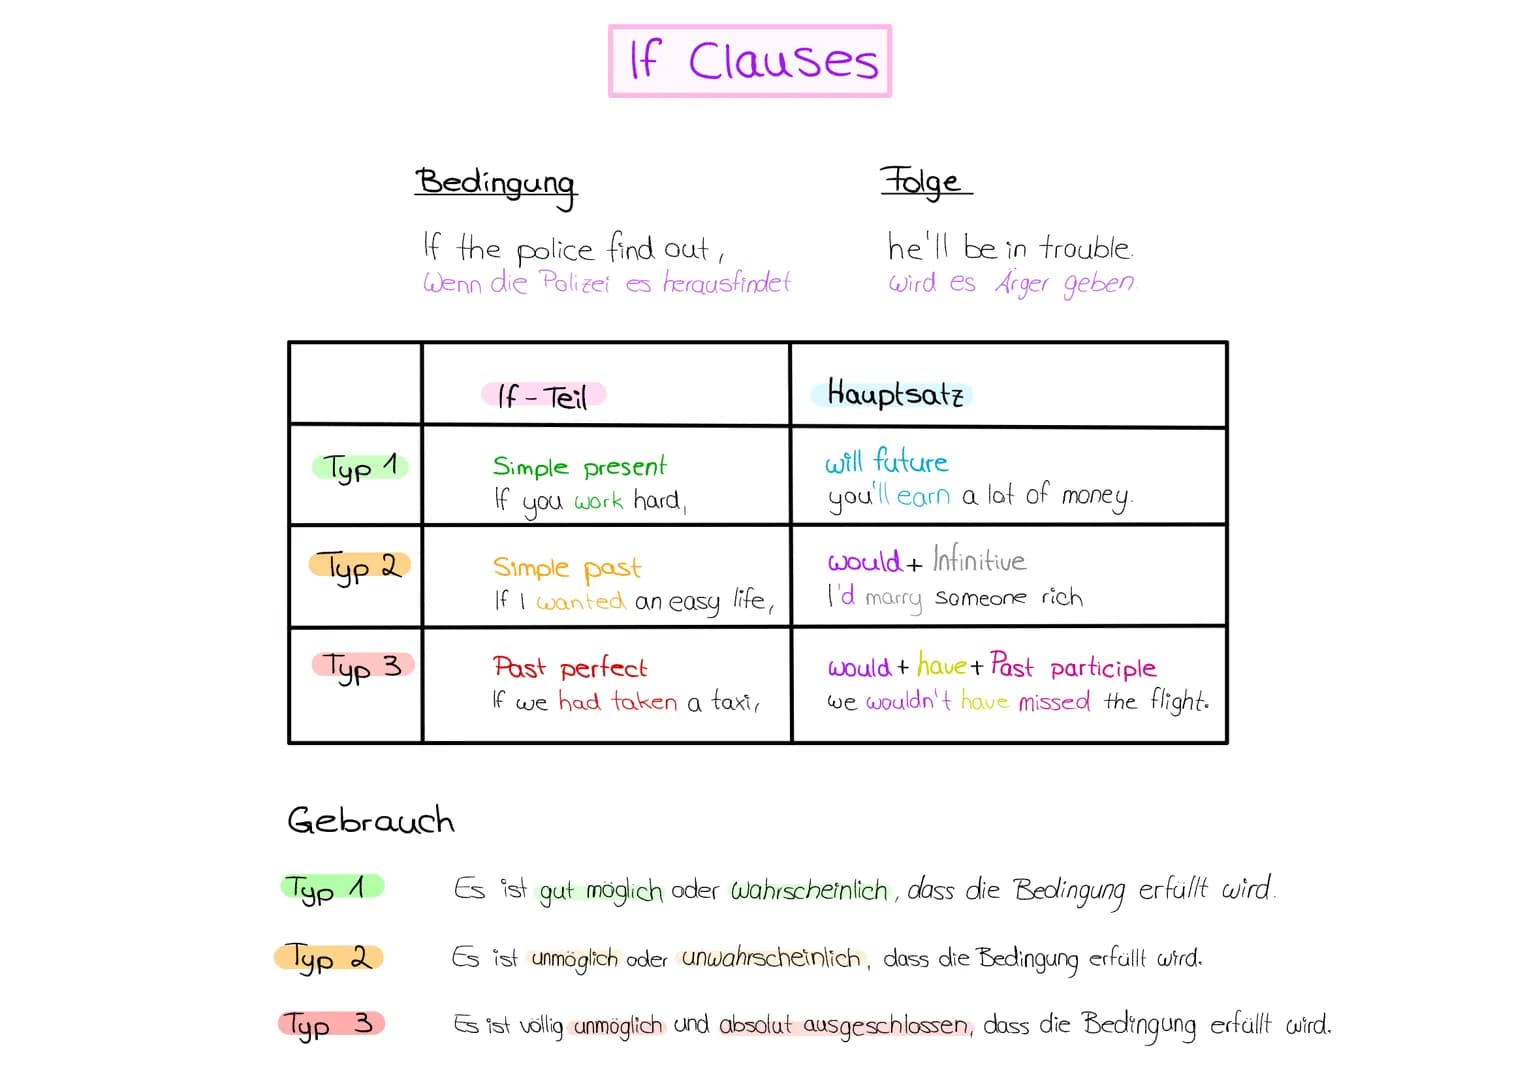 If Clauses
Bedingung
Folge
If the police find out,
he'll be in trouble.
Wenn die Polizei es herausfindet
wird es Ärger geben.
If-Teil
Hauptsatz
Typ 1
Simple present
will future
If you work hard,
you'll earn a lot of money.
Typ 2
Simple past
would + Infinitive
If I wanted an easy life,
I'd marry someone rich
Typ 3
Past perfect
would + have + Past participle
If we had taken a taxi,
we wouldn't have missed the flight.
Gebrauch
Typ 1 Es ist gut möglich oder wahrscheinlich, dass die Bedingung erfüllt wird.
Typ 2 Es ist unmöglich oder unwahrscheinlich, dass die Bedingung erfüllt wird.
Typ 3 Es ist völlig unmöglich und absolut ausgeschlossen, dass die Bedingung erfüllt wird.